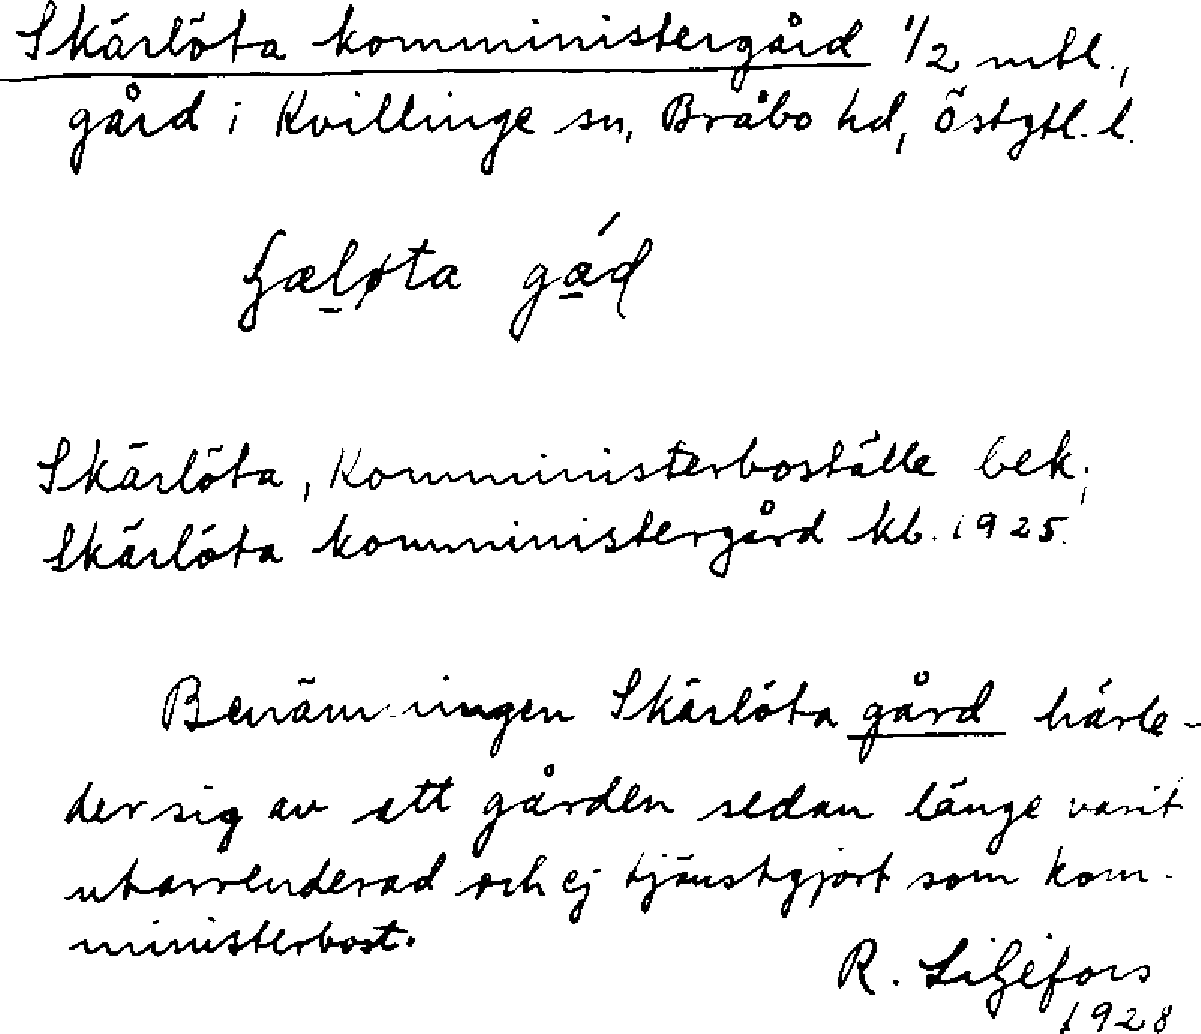 Skärlöta komministergård 1/2 mtl.,
gård i Kvillinge sn, Bråbo hd, Östgtl. l.
gård
Skärlöta, Komministerboställe bek.,
Skärlöta komministergård kb. 1925.
Benämningen Skärlöta gård härle-
der sig av att gården sedan länge varit
utarrenderad och ej tjänstgjort som kom-
ministerbost.
R. Liljefors
1928